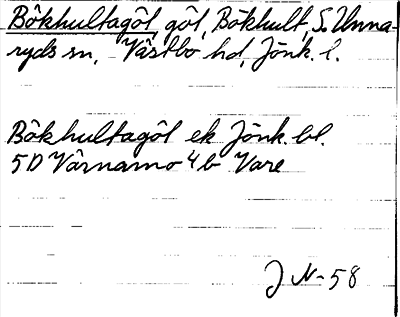 Bökhultagöl, göl, Bökhult, S. Unna-
ryds sn, Västbo hd, Jönk. l.
Bökhultagöl ek Jönk. bl.
5D Värnamo 4b Vare
J N-58